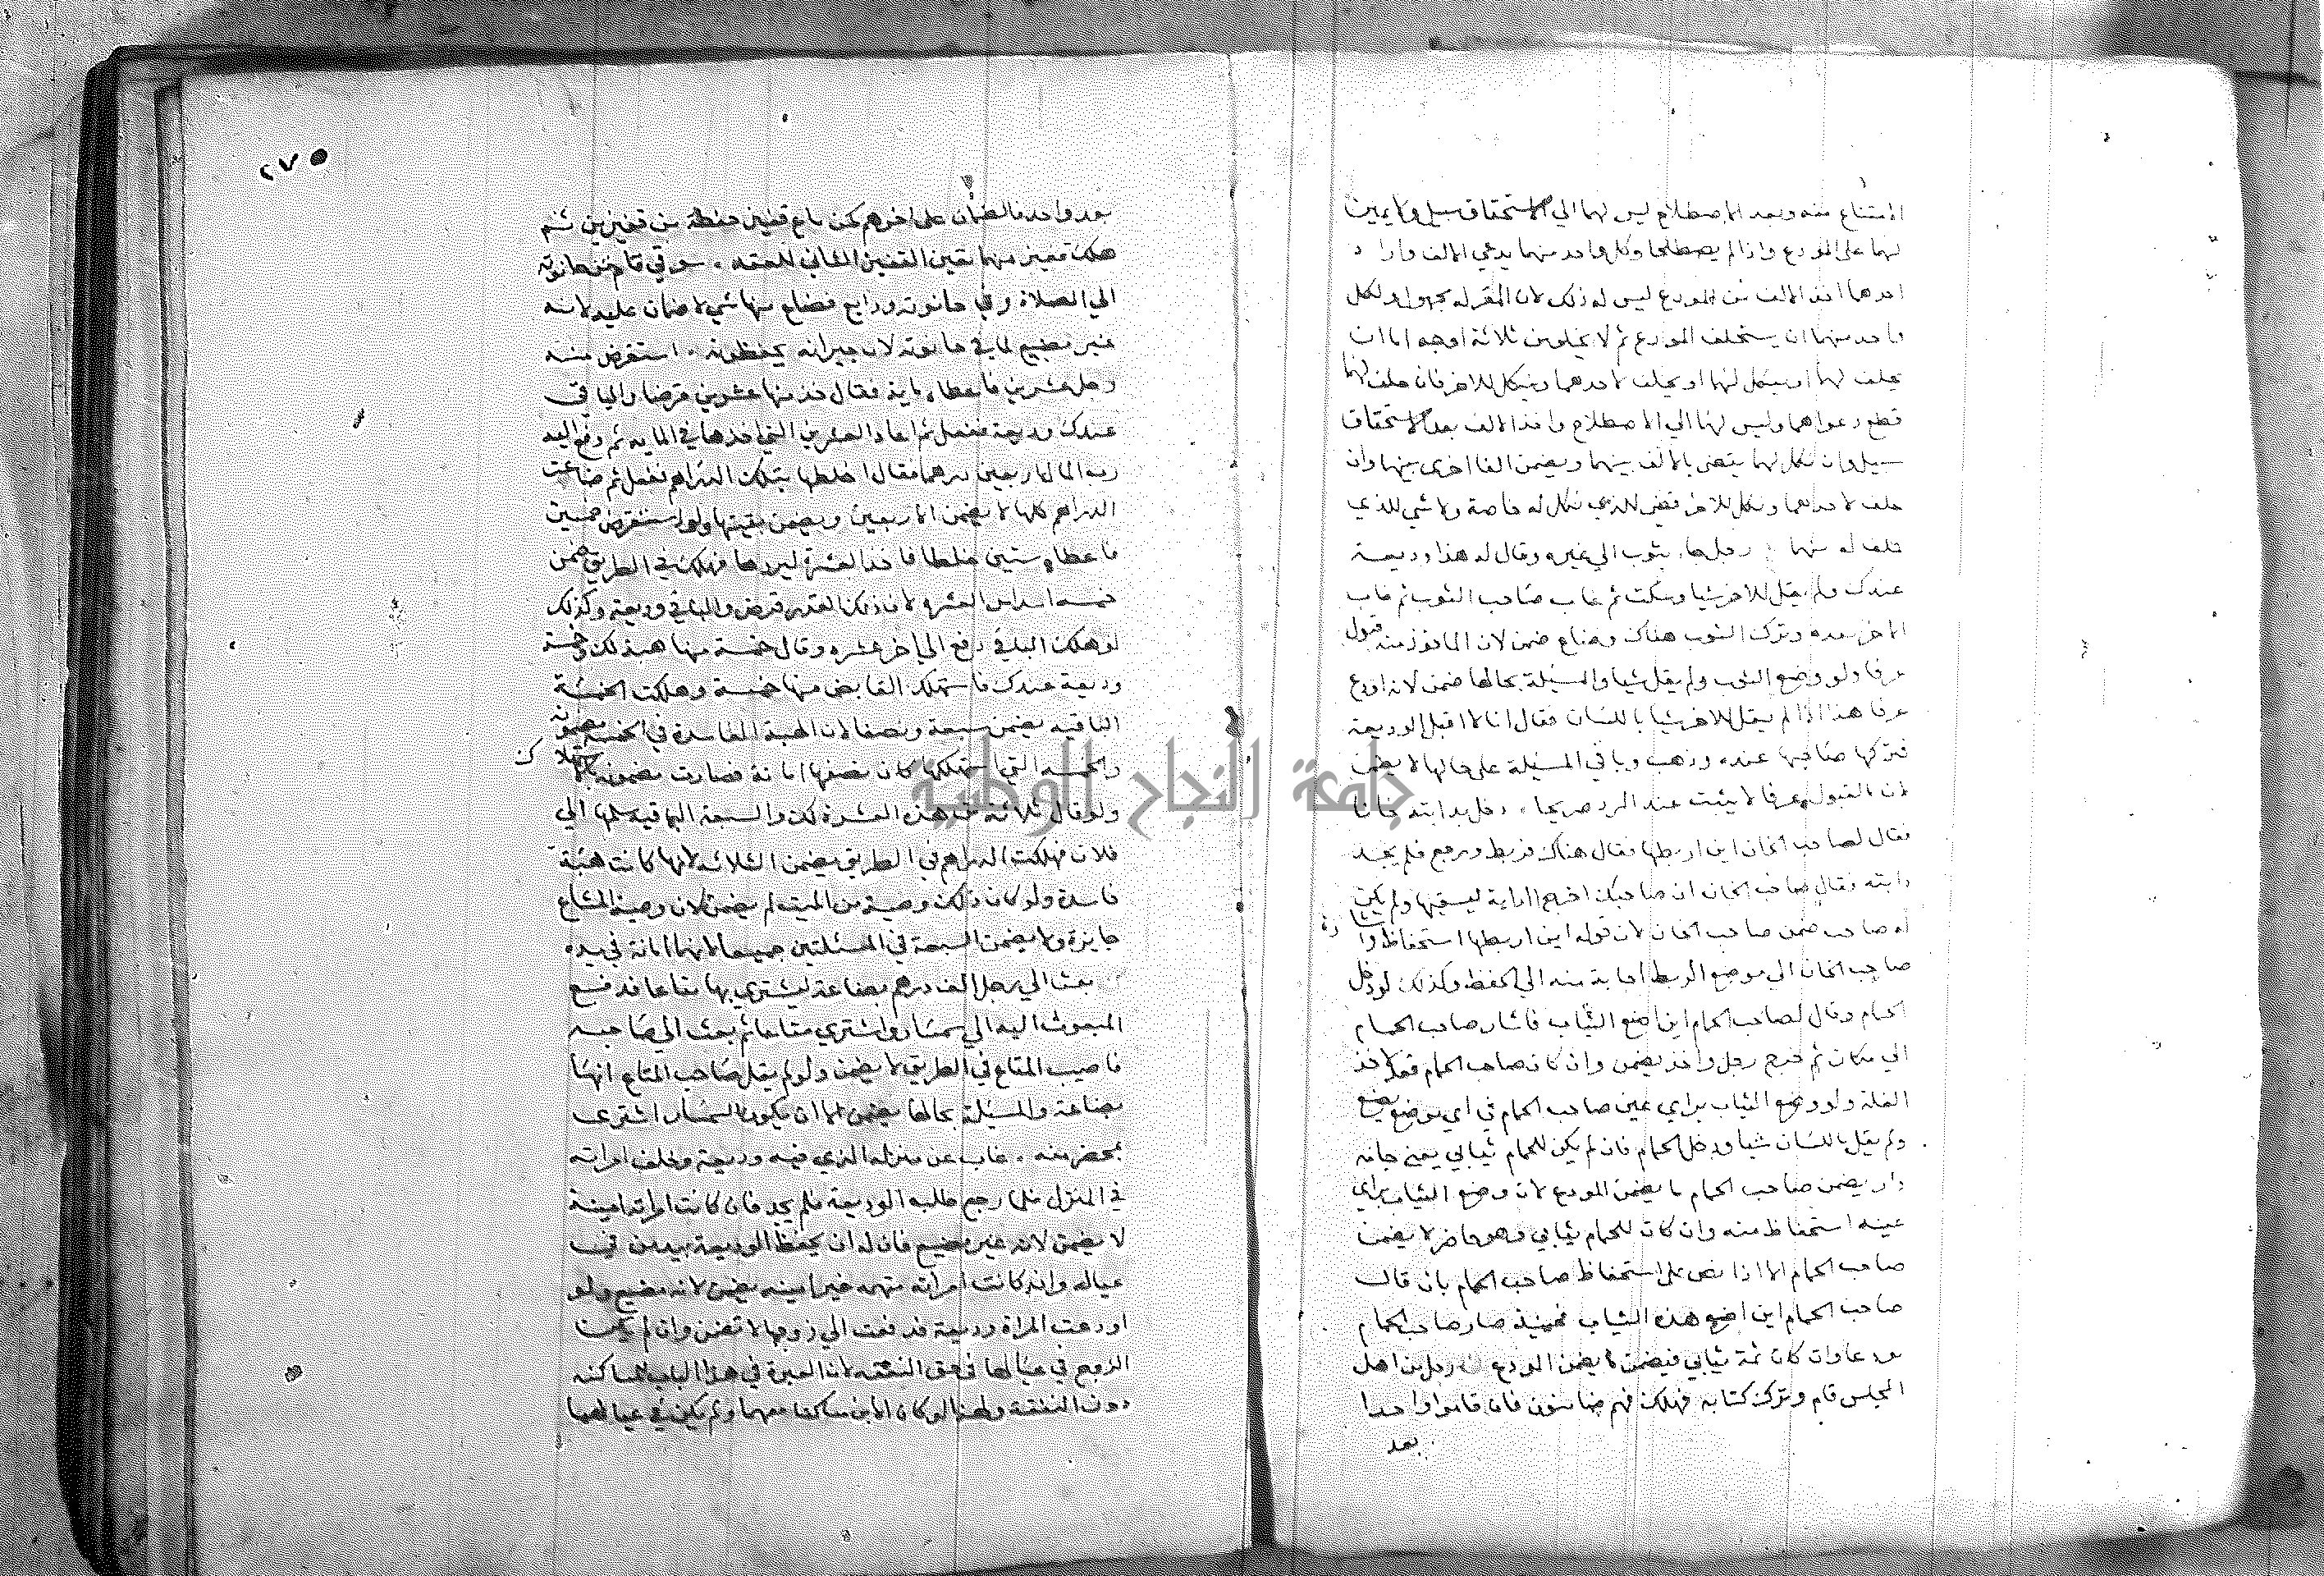 الامتناع منه وبعد الاصطلاح ليس لهما الي الاستحقاق سبيل ولا يمين
لهما على المودع واذا لم يصطلحا وكل واحد منهما يدعي الالف واراد
احدهما اخذ الالف من المودع ليس له ذلك لان المقر له مجهول ولكل
واحد منهما ان يستحلف المودع ثم لا يخلو من ثلاثة اوجه اما ان
يحلف لهما او ينكل لهما او يحلف لاحدهما وينكل للاخر فان حلف لهما
قطع دعواهما وليس لهما الي الاصطلاح واخذ الالف بعد الاستحقاق
سبيل وان نكل لهما يقضى بالالف بينهما ويضمن الفا اخرى بينهما وان
حلف لاحدهما ونكل للاخر قضي للذي نكل له خاصة ولا شي للذي
حلف له منهما رجل جاء بثوب الي غيره وقال له هذا وديعة
عندك ولم يقل للاخر شيا وسكت ثم غاب صاحب الثوب ثم غاب
الاخر بعده وترك الثوب هناك وضاع ضمن لان الماخوذ منه قبول
عرفا ولو وضع الثوب ولم يقل شيا والمسئلة بحالها ضمن لانه اودع
عرفا هذا اذا لم يقل للاخر شيا باللسان فقال انا لا اقبل الوديعة
فتركها صاحبها عنده وذهب وباقي المسئلة على حالها لا يضمن
لان القبول عرفا لا يثبت عند الرد صريحا دخل بدابته خانا
فقال لصاحب الخان اين اربطها فقال هناك فربط ورجع فلم يجد
دابته فقال صاحب الخان ان صاحبك اخرج الدابة ليسقيها ولم يكن
له صاحب ضمن صاحب الخان لان قوله اين اربطها استحفاظ واشارة
صاحب الخان الي موضع الربط اجابة منه الي الحفظ وكذلك لو دخل
الحمام وقال لصاحب الحمام اين اضع الثياب فاشار صاحب الحمام
الي مكان ثم خرج رجل واخذ يضمن وان كان صاحب الحمام
الغلة ولو وضع الثياب براي عين صاحب الحمام في اي موضع يضع
ولم يقل باللسان شيا ودخل الحمام فان لم يكن للحمام ثيابي يعني جامه
دار يضمن صاحب الحمام ما يضمن المودع لان وضع الثياب براي
عينه استحفاظ منه وان كان للحمام ثيابي وهو حاضر لا يضمن
صاحب الحمام الا اذا نص على استحفاظ صاحب الحمام بان قال
صاحب الحمام اين اضع هذه الثياب فحينئذ صار صاحب الحمام
مودعا وان كان ثمة ثيابي فيضمن ما يضمن المودع رجل من اهل
المجلس قام وترك كتابه فهلك فهم ضامنون فان قاموا واحدا
بعد
٢٧٥
بعد واحد فالضمان على اخرهم كمن باع قفيز حنطة من قفيزين ثم
هلك قفيز منهما تعين القفيز الثاني للعقد سوقي قام من حانوته
الي الصلاة وفي حانوته ودايع فضاع منها شي لا ضمان عليه لانه
غير مضيع لما في حانوته لان جيرانه يحفظونه استقرض منه
رجل عشرين فاعطاه ماية فقال خذ منها عشرين قرضا والباقي
عندك وديعة ففعل ثم اعاد العشرين التي اخذها في الماية ثم دفع اليه
رب المال اربعين درهما فقال اخلطها بتلك الدراهم ففعل ثم ضاعت
الدراهم كلها لا يضمن الاربعين ويضمن بقيتها ولو استقرض خمسين
فاعطاه ستين غلطا فاخذ العشرة ليردها فهلكت في الطريق ضمن
خمسة اسداس العشرة لان ذلك القدر قرض والباقي وديعة وكذلك
لو هلك الباقي دفع الي اخر عشرة وقال خمسة منها هبة لك وخمسة
وديعة عندك فاستهلك القابض منها خمسة وهلكت الخمسة
الباقية يضمن سبعة ونصفا لان الهبة الفاسدة في الخمسة مضمونة
والخمسة التي استهلكها كان نصفها امانة فصارت مضمونة بالاستهلاك
ولو قال ثلاثة من هذه العشرة لك والسبعة الباقية سلمها الي
فلان فهلكت الدراهم في الطريق يضمن الثلاثة لانها كانت هبة
فاسدة ولو كان ذلك وصية من الميت لم يضمن لان وصية المشاع
جايزة ولا يضمن السبعة في المسئلتين جميعا لانها امانة في يده
بعث الي رجل الف درهم بضاعة ليشتري بها متاعا فدفع
المبعوث اليه الي سمسار واشترى متاعا ثم بعث الي صاحبه
فاصيب المتاع في الطريق لا يضمن ولو لم يقل صاحب المتاع انها
بضاعة والمسئلة بحالها يضمن الا ان يكون السمسار اشترى
بمحضر منه غاب عن منزله الذي فيه وديعة وخلف امراته
في المنزل فلما رجع طلب الوديعة فلم يجد فان كانت امراته امينة
لا يضمن لانه غير مضيع فان له ان يحفظ الوديعة بيد من في
عياله وان كانت امراته متهمة غير امينة يضمن لانه مضيع ولو
اودعت المراة وديعة فدفعت الي زوجها لا تضمن وان لم يكن
الزوج في عيالها في حق النفقة لان العبرة في هذا الباب للمساكنة
دون النفقة ولهذا لو كان الابن ساكنا معهما ولم يكن في عيالهما
جامعة النجاح الوطنية